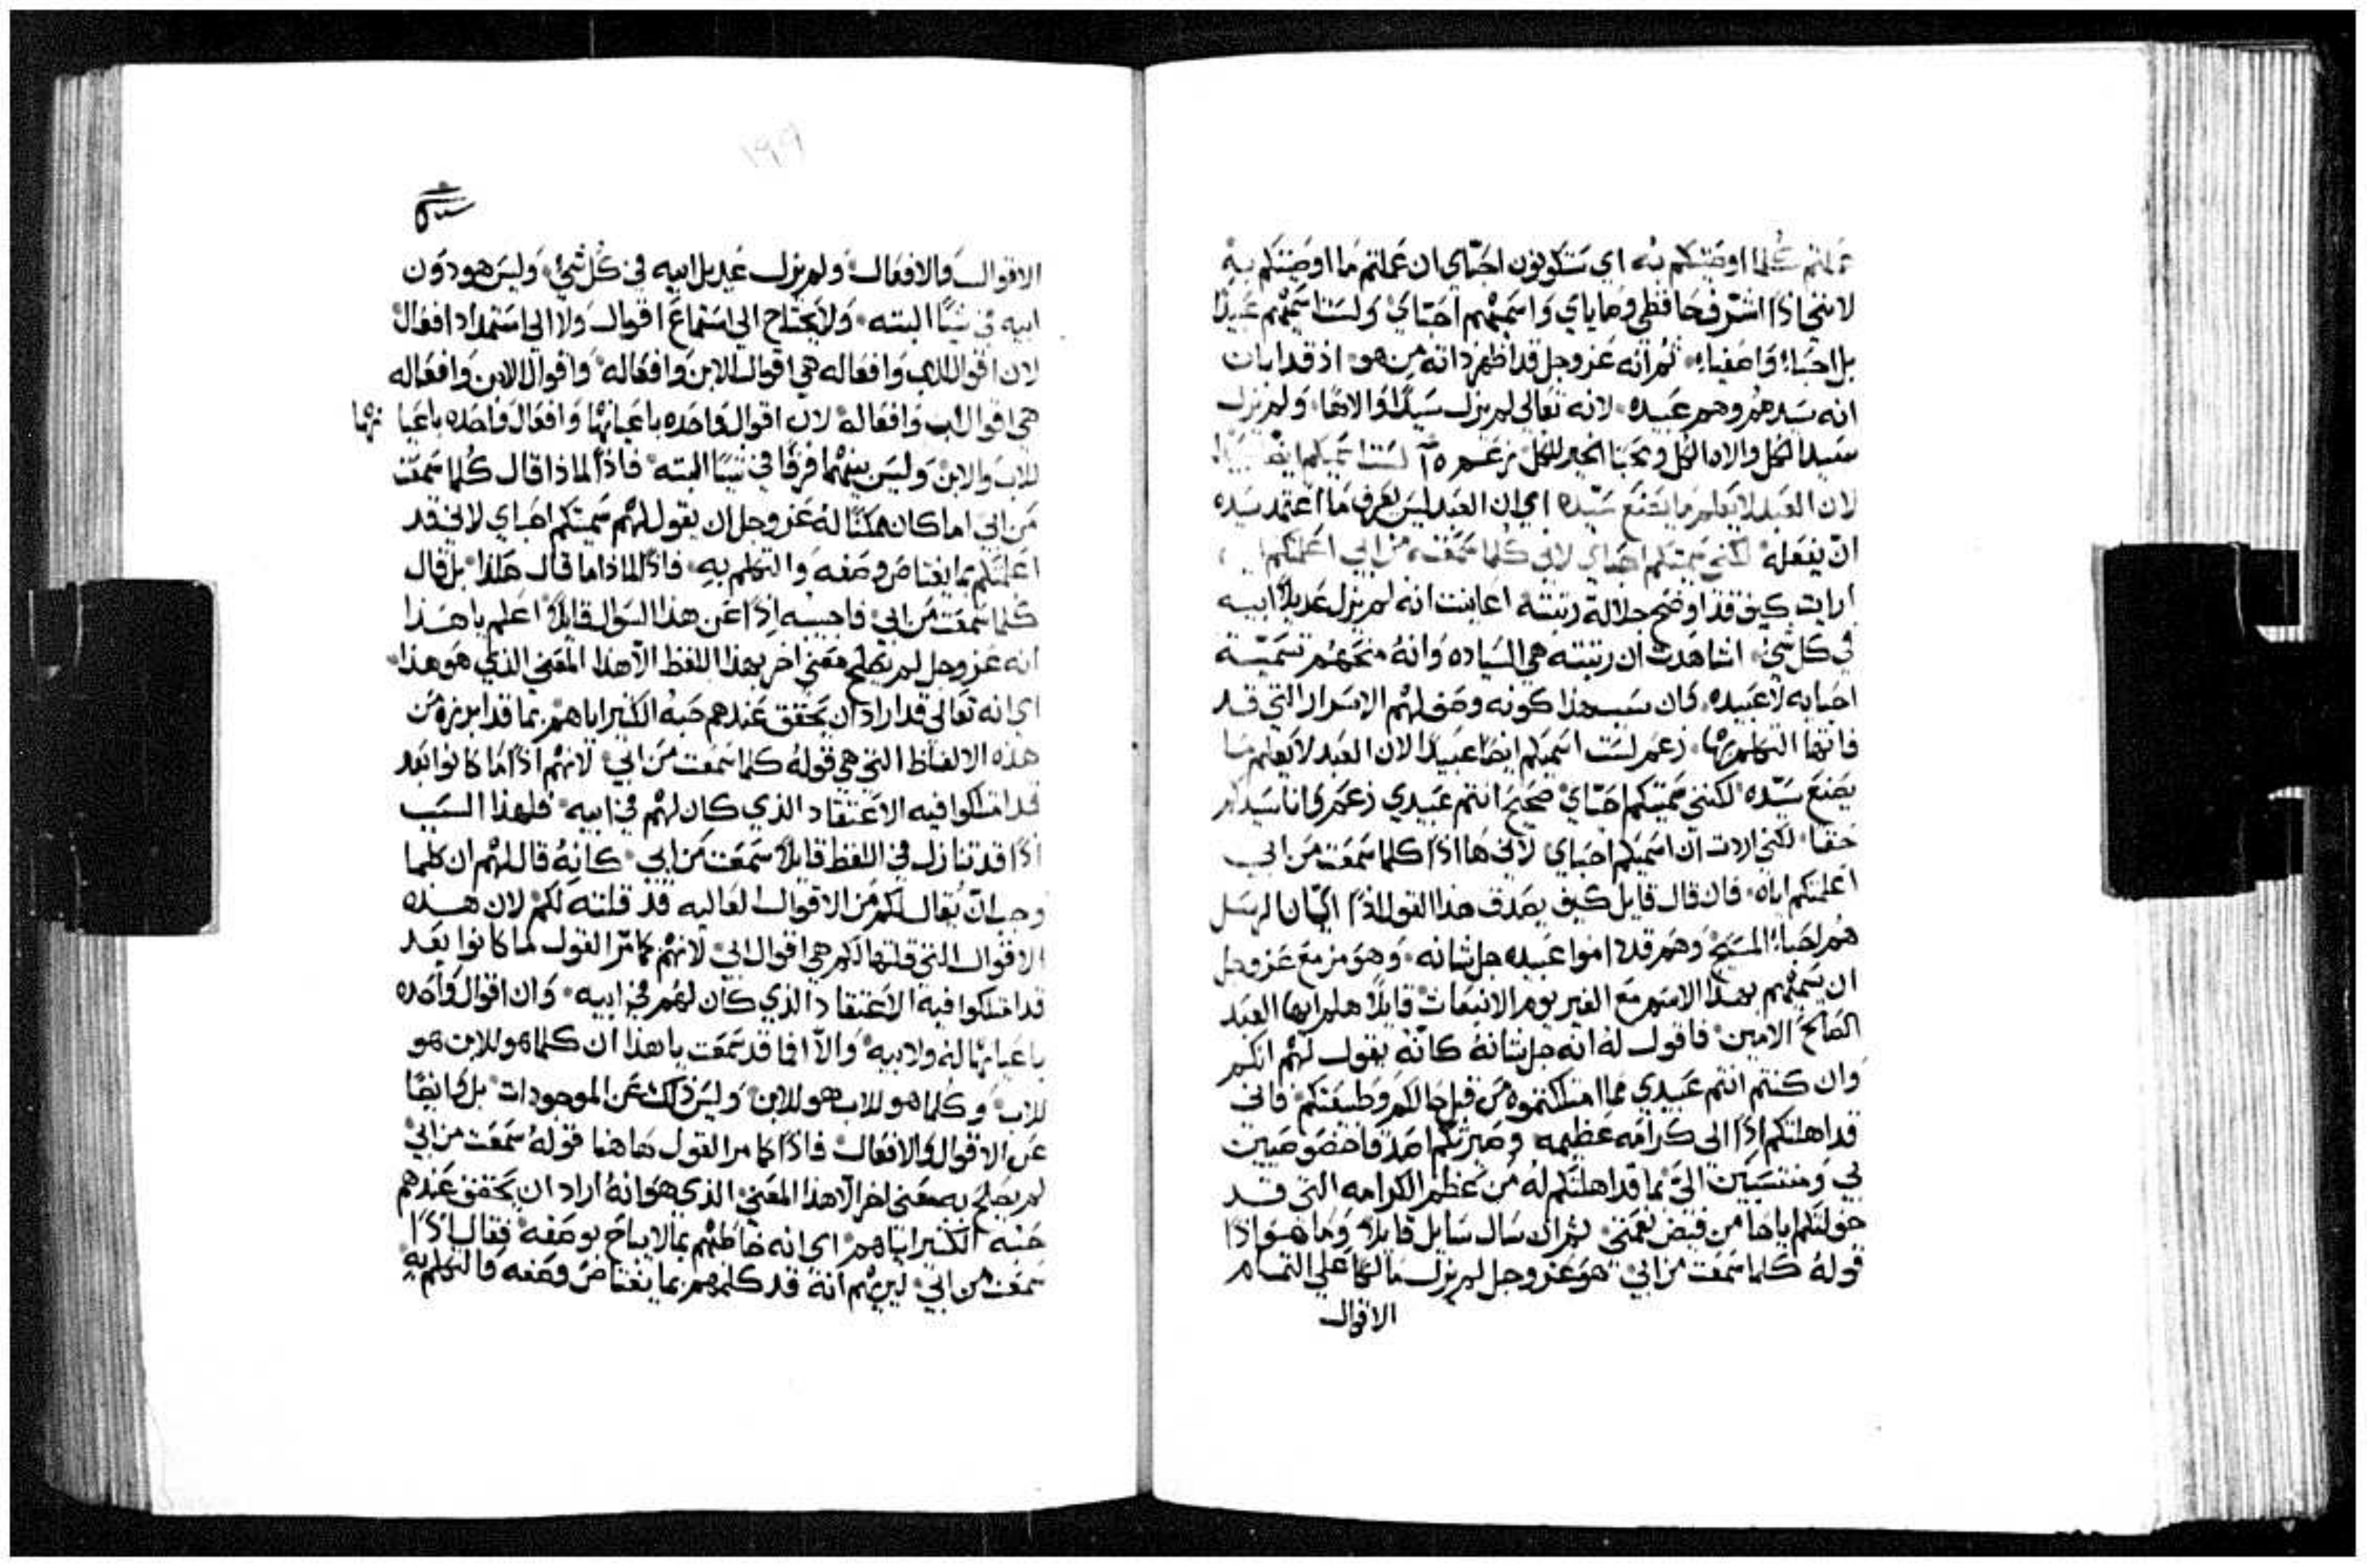 عملتم كلما اوصيتكم به اي ستكونون احباي ان عملتم ما اوصيتكم به
لانني اذًا اشرف حافظي وصاياي واسميهم احباي ولست اسميهم عبيدًا
بل احباء واصفياء ثم انه عز وجل قد اظهر ذاته من هو اذ قد ابان
انه سيدهم وهم عبيده لانه تعالى لم يزل سيدًا والاهًا ولم يزل
سيد الكل والاه الكل الكل زعم لست اسميكم ايضًا عبيدًا
لان العبد لا يعلم ما يصنع سيده اي ان العبد ليس يعرف ما اعتمد سيده
ان يفعله لكني سميتكم احباي لاني كلما سمعت من ابي اعلمتكم
ارايت كيف قد اوضح جلالة رتبته اعاينت انه لم يزل عديلًا لابيه
في كل شي اشاهدت ان رتبته هي السياده وانه منحهم تسمية
احبايه لا عبيده وان سبب هذا كونه وصف لهم الاسرار التي قد
فاتها التكلم بها زعم لست اسميكم ايضًا عبيدًا لان العبد لا يعلم ما
يصنع سيده لكنني سميتكم احباي صحيح انتم عبيدي زعم وانا سيدكم
حقا لكني اردت ان اسميكم احباي لاني ها اذًا كلما سمعت من ابي
اعلمتكم اياه فان قال قايل كيف يصدق هذا القول اذًا اي ان الرسل
هم احباء المسيح وهم قد اموا عبيده جل شانه وهو مزمع عز وجل
ان يسميهم بهذا الاسم مع الغير يوم الانبعاث قايلًا هلم ايها العبد
الصالح الامين فاقول له انه جل شانه كانه يقول لهم انكم
وان كنتم انتم عبيدي مما امتلكتموه من قبل حالكم وطبيعتكم فاني
قد اهلتكم اذًا الى كرامه عظيمه وصيرتكم اصدقا خصوصيين
لي ومنتسبين الي بما قد اهلتكم له من عظم الكرامه التي قد
خولتكم اياها من فيض نعمتي ثم ان سال سايل قايلًا وما هو اذًا
قوله كلما سمعت من ابي هو عز وجل لم يزل مالكًا على التمام
الاقوال
١٩٩
الاقوال والافعال ولم يزل عديل ابيه في كل شي وليس هو دون
ابيه في شيًا البته ولا يحتاج الى استماع اقوال ولا الى استمداد افعال
لان اقوال الاب وافعاله هي اقوال الابن وافعاله واقوال الابن وافعاله
هي اقوال الاب وافعاله لان اقوال واحده باعيانها وافعال واحده باعيا نها
للاب والابن وليس بينهما فرقًا في شيًا البته فاذًا لماذا قال كلما سمعت
من ابي اما كان ممكنًا له عز وجل ان يقول لهم سميتكم احباي لاني قد
اعلمتكم بما يعتاص وصفه والتكلم به فاذًا لماذا ما قال هكذا بل قال
كلما سمعت من ابي فاجيبه اذًا عن هذا السوال قايلًا اعلم يا هذا
انه عز وجل لم يصلح معنى اخر بهذا اللفظ الا هذا المعنى الذي هو هذا
اي انه تعالى قد اراد ان يحقق عندهم حبه الكثير اياهم بما قد ابرزه من
هذه الالفاظ التي هي قوله كلما سمعت من ابي لانهم اذًا ما كانوا بعد
قد امتلكوا فيه الاعتقاد الذي كان لهم في ابيه فلهذا السبب
اذًا قد تنازل في اللفظ قايلًا سمعت من ابي كانه قال لهم ان كلما
وجب ان يقال لكم من الاقوال العاليه قد قلته لكم لان هذه
الاقوال التي قلتها لكم هي اقوال ابي لانهم كما مر القول لما كانوا بعد
قد امتلكوا فيه الاعتقاد الذي كان لهم في ابيه وان اقوال واحده
باعيانها له ولابيه والا افما قد سمعت يا هذا ان كلما هو للابن هو
للاب وكلما هو للاب هو للابن وليس ذلك عن الموجودات بل وايضًا
عن الاقوال والافعال فاذًا كما مر القول هاهنا قوله سمعت من ابي
لم يصلح به معنى اخر الا هذا المعنى الذي هو انه اراد ان يحقق عندهم
حبه الكثير اياهم اي انه خاطبهم بما لا يباح بوصفه فقال اذًا
سمعت من ابي ليريهم انه قد كلمهم بما يعتاص وصفه والتكلم به